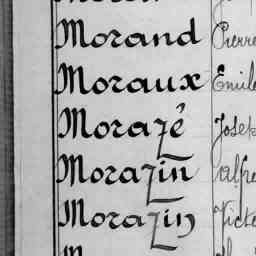 Morand Pierre
Moraux Emile
Morazé Josep
Morazin Alfre
Morazin Victo